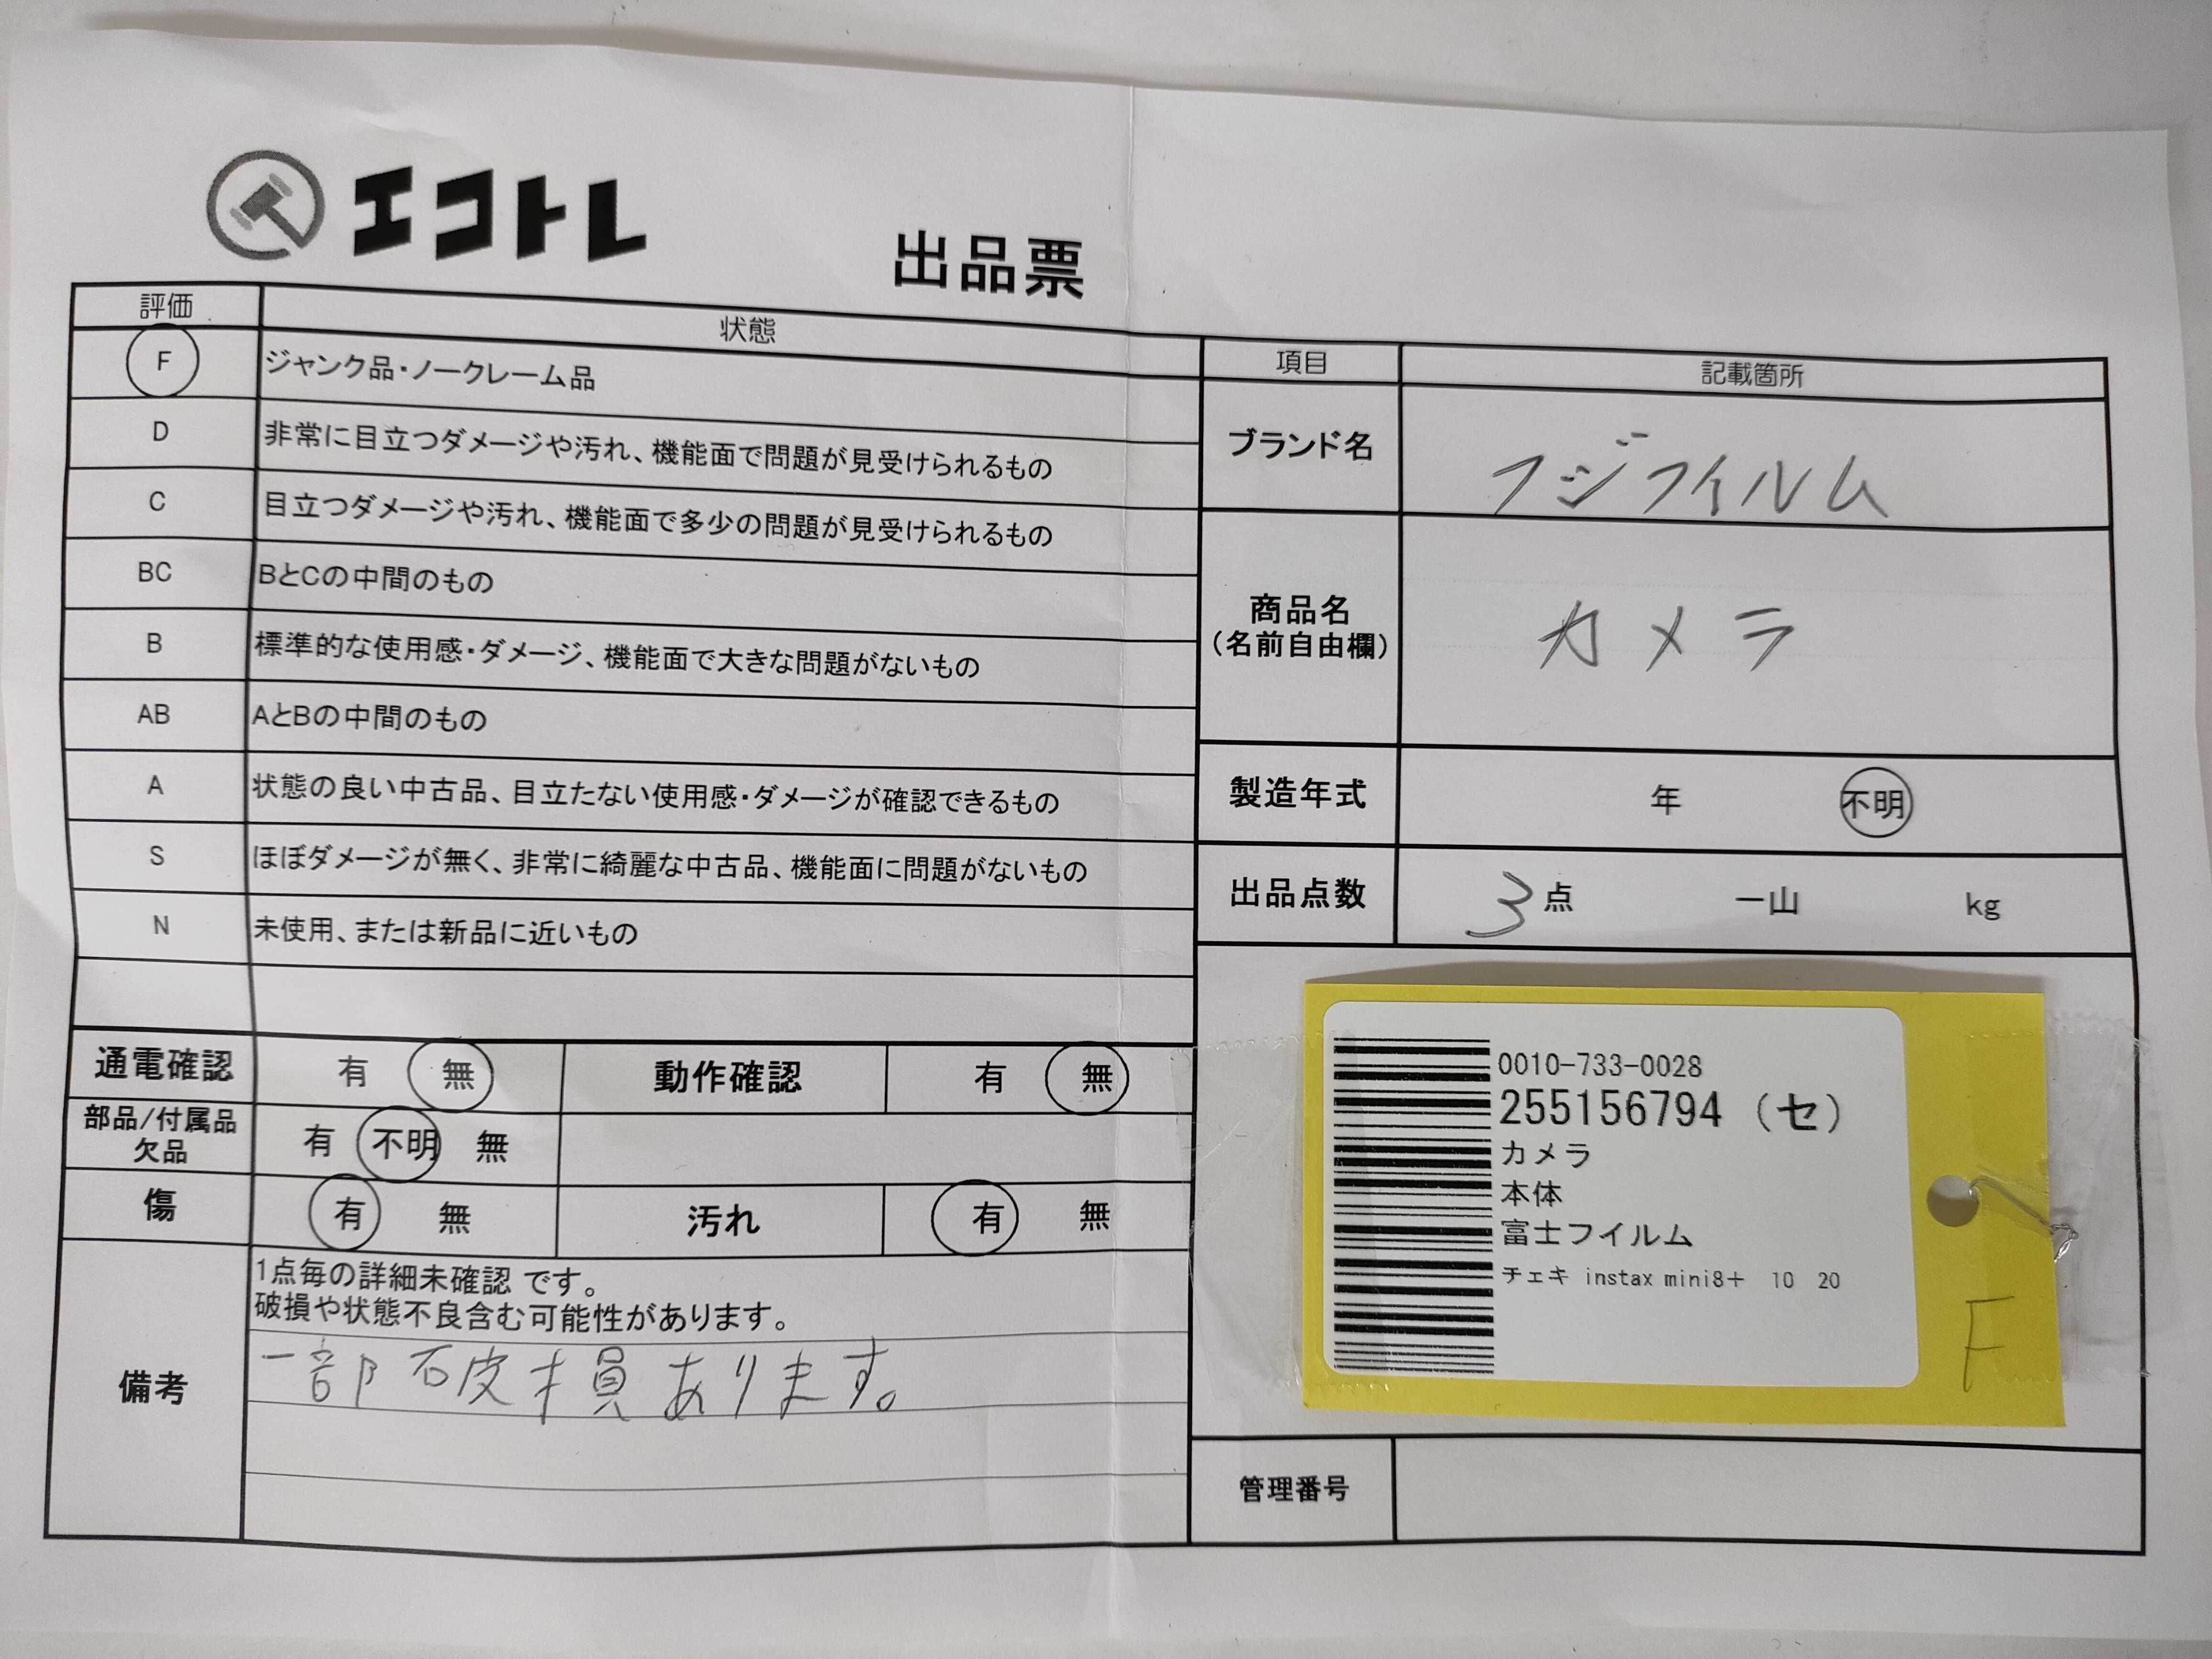 エコトレ
出品票
評価 状態
F ジャンク品・ノークレーム品
D 非常に目立つダメージや汚れ、機能面で問題が見受けられるもの
C 目立つダメージや汚れ、機能面で多少の問題が見受けられるもの
BC BとCの中間のもの
B 標準的な使用感・ダメージ、機能面で大きな問題がないもの
AB AとBの中間のもの
A 状態の良い中古品、目立たない使用感・ダメージが確認できるもの
S ほぼダメージが無く、非常に綺麗な中古品、機能面に問題がないもの
N 未使用、または新品に近いもの
通電確認 有 無 動作確認 有 無
部品/付属品
欠品 有 不明 無
傷 有 無 汚れ 有 無
備考
1点毎の詳細未確認 です。
破損や状態不良含む可能性があります。
一部破損あります。
項目 記載箇所
ブランド名 フジフイルム
商品名
(名前自由欄) カメラ
製造年式 年 不明
出品点数 3点 一山 kg
0010-733-0028
255156794 (セ)
カメラ
本体
富士フイルム
チェキ instax mini8+ 10 20
F
管理番号